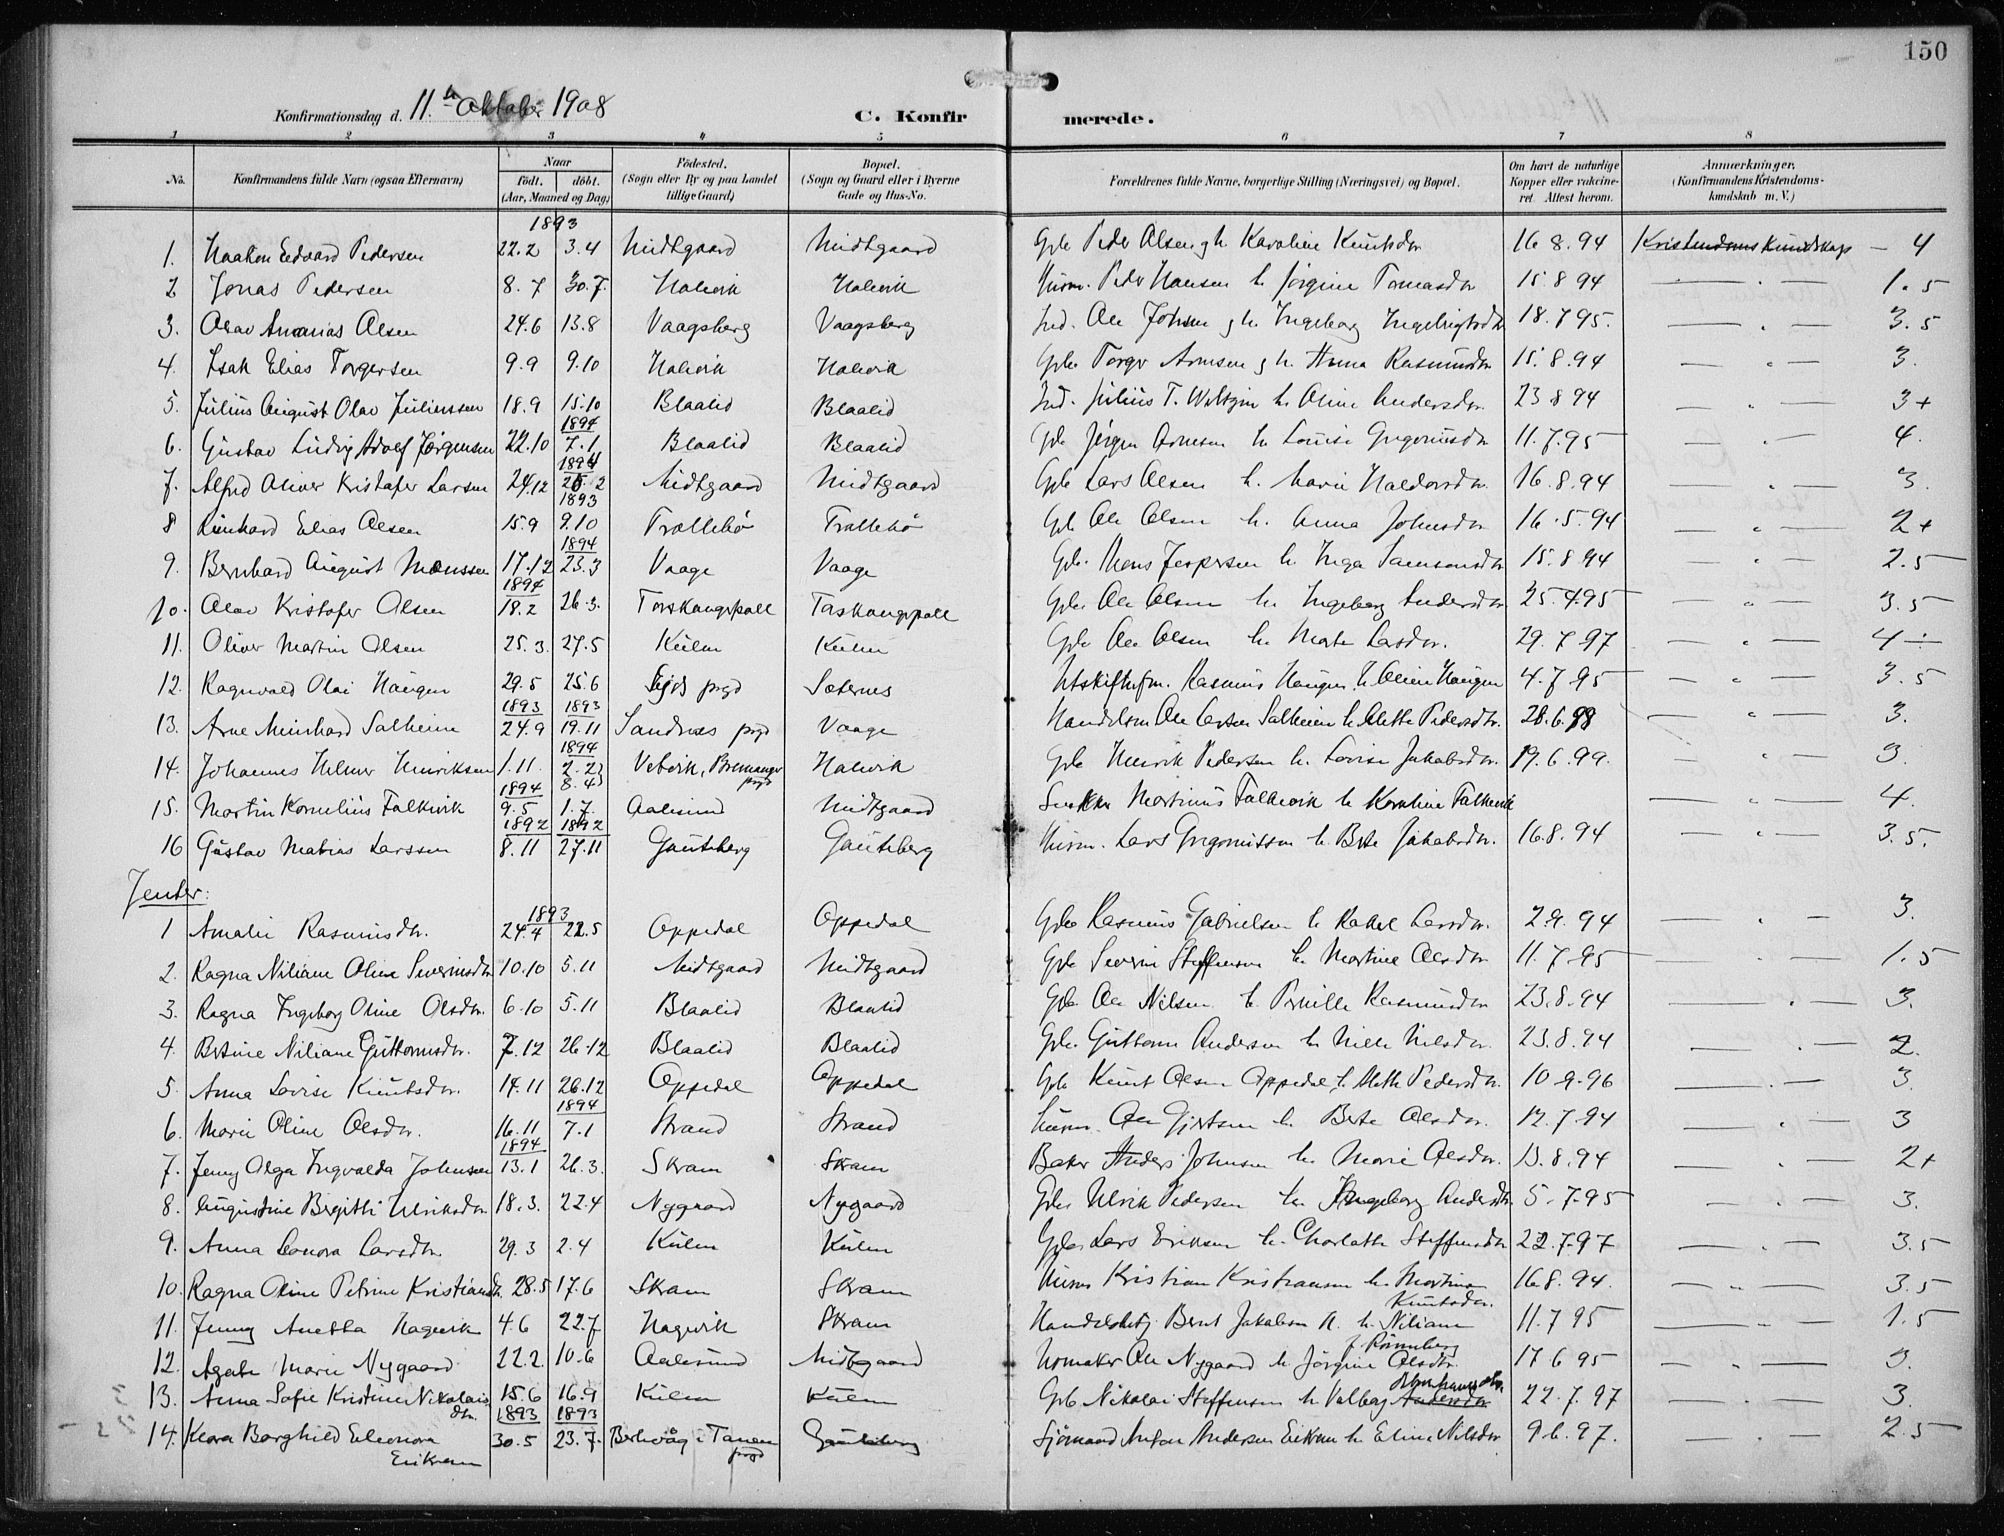 150
Konfirmationsdag d. 11. Oktober 1908 C. Konfirmerede.
1 2 3 4 5 6 7 8
No. Konfirmandens fulde Navn (ogsaa Efternavn) Naar födt. döbt. (Aar, Maaned og Dag) Födested. (Sogn eller By og paa Landet tillige Gaard) Bopæl. (Sogn og Gaard eller i Byerne Gade og Hus-No. Forældrenes fulde Navne, borgerlige Stilling (Næringsvei) og Bopæl. Om havt de naturlige Kopper eller vakcineret. Attest herom. Anmærkninger. (Konfirmandens Kristendomskundskab m. V.)
1893
1. Haakon Edvard Pedersen 22.2 3.4 Midtgaard Midtgaard Gbr Peder Olsen gh Karoline Knutsdr 16 8.94 Kristendoms Kundskap — 4
2 Jonas Pedersen 8.7 30.7. Halvik Halvik Husm. Peder Hansen h. Jørgine Tomasdr 15 8 94 — " — 1.5
3. Olav Ananias Olsen 24.6 13.8 Vaagsberg Vaagsberg Ind. Ole Johnsen g h. Ingeborg Ingebrigtsdtr 18.7 95. — " — 3.5
4. Isak Elias Torgersen 9.9 9.10 Halvik Halvik Gbr. Torger Arnesen g h. Anna Rasmusdr 15.8.94 — " — 3.
5. Julius August Olav Juliussen 18.9 15.10 Blaalid Blaalid Ind. Julius T. h. Oline Andersdr. 23 8 94 — " — 3+
1894
6. Gustav Ludvig Adolf Jørgensen 22.10 7.1 Blaalid Blaalid Gbr Jørgen Arnesen h Louise Gregoriusdr 11.7.95 — " — 4.
1894
7. Alfred Oliver Kristofer Larsen 24.12 25.2 Midtgaard Midtgaard Gbr Lars Olsen h. Marie Haldorsdr. 16.8.94 — " — 3.
1893
8 Reinhard Elias Olsen 15.9 9.10 Trollebø Trollebø Gb Ole Olsen h. Anna Johnsdr 16.5.94 — " — 2+
1894
9. Bernhard August Monssen 17.12 23.3 Vaage Vaage Gbr. Mons Jespersen h Inga Samsonsdr 15.8 94 — " — 2.5
1894
10. Olav Kristofer Olsen 18.2 26.3. Torskangerpoll Taskangerpoll Gbr. Ole Olsen h. Ingeborg Andersdr 25.4.95 — " — 3.5
11. Oliver Martin Olsen 25.3. 27.5 Kulen Kulen Gbr Ole Olsen h. Marte Larsdr. 29.7 97 — " — 4 ÷
12. Ragnvald Olai Haugen 29.5 25.6 prgd Sæternes Utskiftnfm. Rasmus Haugen h. Oline Haugen 4.7.95 — " — 3.5
1893 1893
13. Arne Meinhard Salheim 24.9 19.11 Sandnes prgd Vaage Handelsm Ole Larsen Salheim h. Alette Pedersdtr. 28.6.98 — " — 3.
1894
14. Johannes Helmer Henriksen 1.11. 2.2 8.4 Vetvik, Bremanger prgd Halvik Gbr Henrik Pedersen h. Lovise Jakobsdr. 19.6.99. — " — 3.
1894
15. Martin Kornelius Falkevik 9.5 1.7. Aalesund Midtgaard Snekker Martinus Falkevik h Karoline Falkevik — " — 4.
1892 1892
16 Gustav Mabias Larssen 8.11 27.11 Gauteberg Gauteberg Husm. Lars Gregoriussen h. Berte Jakobsdr. 16.8.94 — " — 3.5.
Jenter:
1893
1 Amalie Rasmusdtr. 24.4 22.5 Oppedal Oppedal Gbr Rasmus Gabrielsen h Rakel Larsdr. 2.9.94 — " — 3.
2. Ragna Niliane Oline Severinsdtr 10.10 5.11 Midtgaard Midtgaard Gbr Severin Steffensen h. Martine Olsdr 11.7.95 — " — 1.5
3. Ragna Ingeborg Oline Olsdtr. 6.10 5.11 Blaalid Blaalid Gbr. Ole Nilsen h. Pernille Rasmusdr 23.8.94 — " — 3.
4. Betine Niliane Guttormsdr. 7.12 26.12 Blaalid Blaalid Gbr. Guttorm Andersen h Nille Nilsdr. 23.8.94 — " — 2.
5. Anna Lovise Knutsdr. 14.11 26.12 Oppedal Oppedal Gbr Knut Olsen Oppedal h. Mette Pedersdtr. 10 9.96 — " — 3.
1894
6. Marie Oline Olsdr. 16.11 7.1 Strand Strand Husm. Ole Gjertsen h. Berte Olsdr. 12.7.94 — " — 3
1894
7. Jenny Olga Ingvalda Johnsen 13.1 26.3. Skram Skram Baker Anders Johnsen h. Marie Olsdr. 13.8.94 — " — 2+
8. Augustine Birgitte Ulriksdr. 18.3. 22.4 Nygaard Nygaard Gbr Ulrik Pedersen h. Ingeborg Andersdtr 5.7.95 — " — 3.
9. Anna Leonora Larsdtr. 29.3 2.4 Kulen Kulen Gbr. Lars Eriksen h. Charlotte Steffensdr 22.7.97 — " — 3.5
10. Ragna Oline Petrine Kristiansdtr. 28.5 17.6 Skram Skram Husm Kristian Kristiansen h. Martina Knutsdr. 16 8.94. — " — 3.5
11. Jenny Anetta Hagevik 4.6 22.7 Hagevik Skram Handelsbetj. Bernt Jakobsen H. h. Niliane f. Rønneberg 11.7 95 — " — 1.5
12. Agate Marie Nygaard 22.2. 10.6 Aalesund Midtgaard Urmaker Ole Nygaard h. Jørgine Olsdtr. 17 6 95 — " — 3.
13. Anna Sofie Kristine Nikolaisdtr. 15.6 16.9 Kulen Kulen Gbr Nikolai Steffensen h Valborg Andersdtr Abrahamsdtr. 22.7.97 — " — 3.
1893 1893
14. Klara Borghild Eleonora Eriksen 30.5 23.7. Berlevåg i Tanen prgd Gauteberg Sjömand Anton Andersen Eriksen h. Eline Nilsdr 9 6.97. — " — 2.5